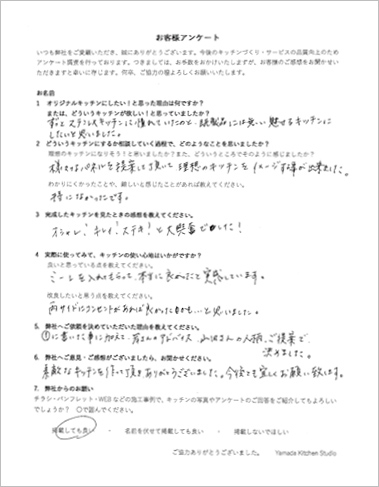 お客様アンケート
いつも弊社をご愛顧いただき、誠にありがとうございます。今後のキッチンづくり・サービスの品質向上のため
アンケート調査を行っております。つきましては、お手数をおかけいたしますが、お客様のご感想をお聞かせい
ただきますと幸いに存じます。何卒、ご協力の程よろしくお願いいたします。
お名前
1 オリジナルキッチンにしたい!と思った理由は何ですか?
または、どういうキッチンが欲しい!と思っていますか?
ずっとステンレスキッチンに憧れていたのと、既製品には無い魅せるキッチンに
したいと思いました。
2 どういうキッチンにするか相談していく過程で、どのようなことを思いましたか?
理想のキッチンになりそう!と思いましたか?また、どういうところでそのように感じましたか?
様々なパネルを提案して頂いて理想のキッチンをイメージする事が出来ました。
わかりにくかったことや、難しいと感じたことがあれば教えてください。
特になかったです。
3 完成したキッチンを見たときの感想を教えてください。
オシャレ!キレイ!ステキ!と大興奮でした!
4 実際に使ってみて、キッチンの使い心地はいかがですか?
良いと思っている点を教えてください。
ミーレを入れてもらって、本当に良かったと実感しています。
改良したいと思う点を教えてください。
両サイドにコンセントがあれば良かったかも…と思いました。
5. 弊社へご依頼を決めていただいた理由を教えてください。
①に書いた事に加えて、
さんの人柄、ご提案で
決めました。
6. 弊社へご意見・ご感想がございましたら、お聞かせください。
素敵なキッチンを作って頂きありがとうございました。今後とも宜しくお願い致します。
7. 弊社からのお願い
チラシ・パンフレット・WEBなどの施工事例で、キッチンの写真やアンケートのご回答をご紹介してもよろしい
でしょうか? ○で囲んでください。
掲載しても良い ・ 名前を伏せて掲載しても良い ・ 掲載しないでほしい
ご協力ありがとうございました。 Yamada Kitchen Studio